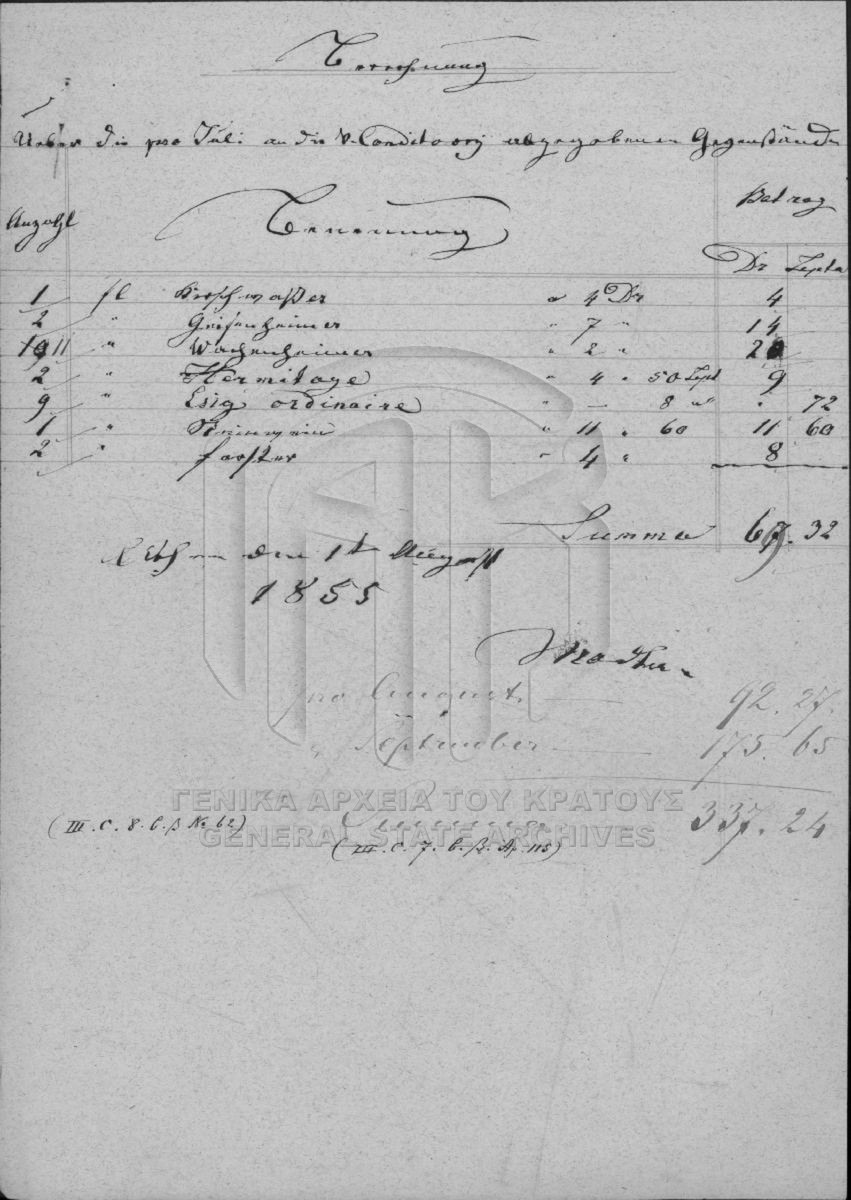 Berechnung
Ueber die pro Juli an die K. Conditorey abgegebenen Gegenstände
Anzahl Benennung Betrag
Dr Lepta
1 fl Kirschwaßer a 4 Dr 4
2 " Geisenheimer " 7 " 14
11 " Wachenheimer " 2 " 20
2 " Hermitage " 4 " 50 Lept 9
9 " Esig ordinaire " — 8 " " 72
1 " Steinwein " 11 " 60 11 60
2 " Forster " 4 " 8
Summa 69. 32
Athen den 1t August
1855
pro August 92. 27.
" September 175. 65
Summa 337. 24
(III. C. 8. b. β No 62)
(III. C. 7. b. β. Ap. 115)
ΓΕΝΙΚΑ ΑΡΧΕΙΑ ΤΟΥ ΚΡΑΤΟΥΣ
GENERAL STATE ARCHIVES